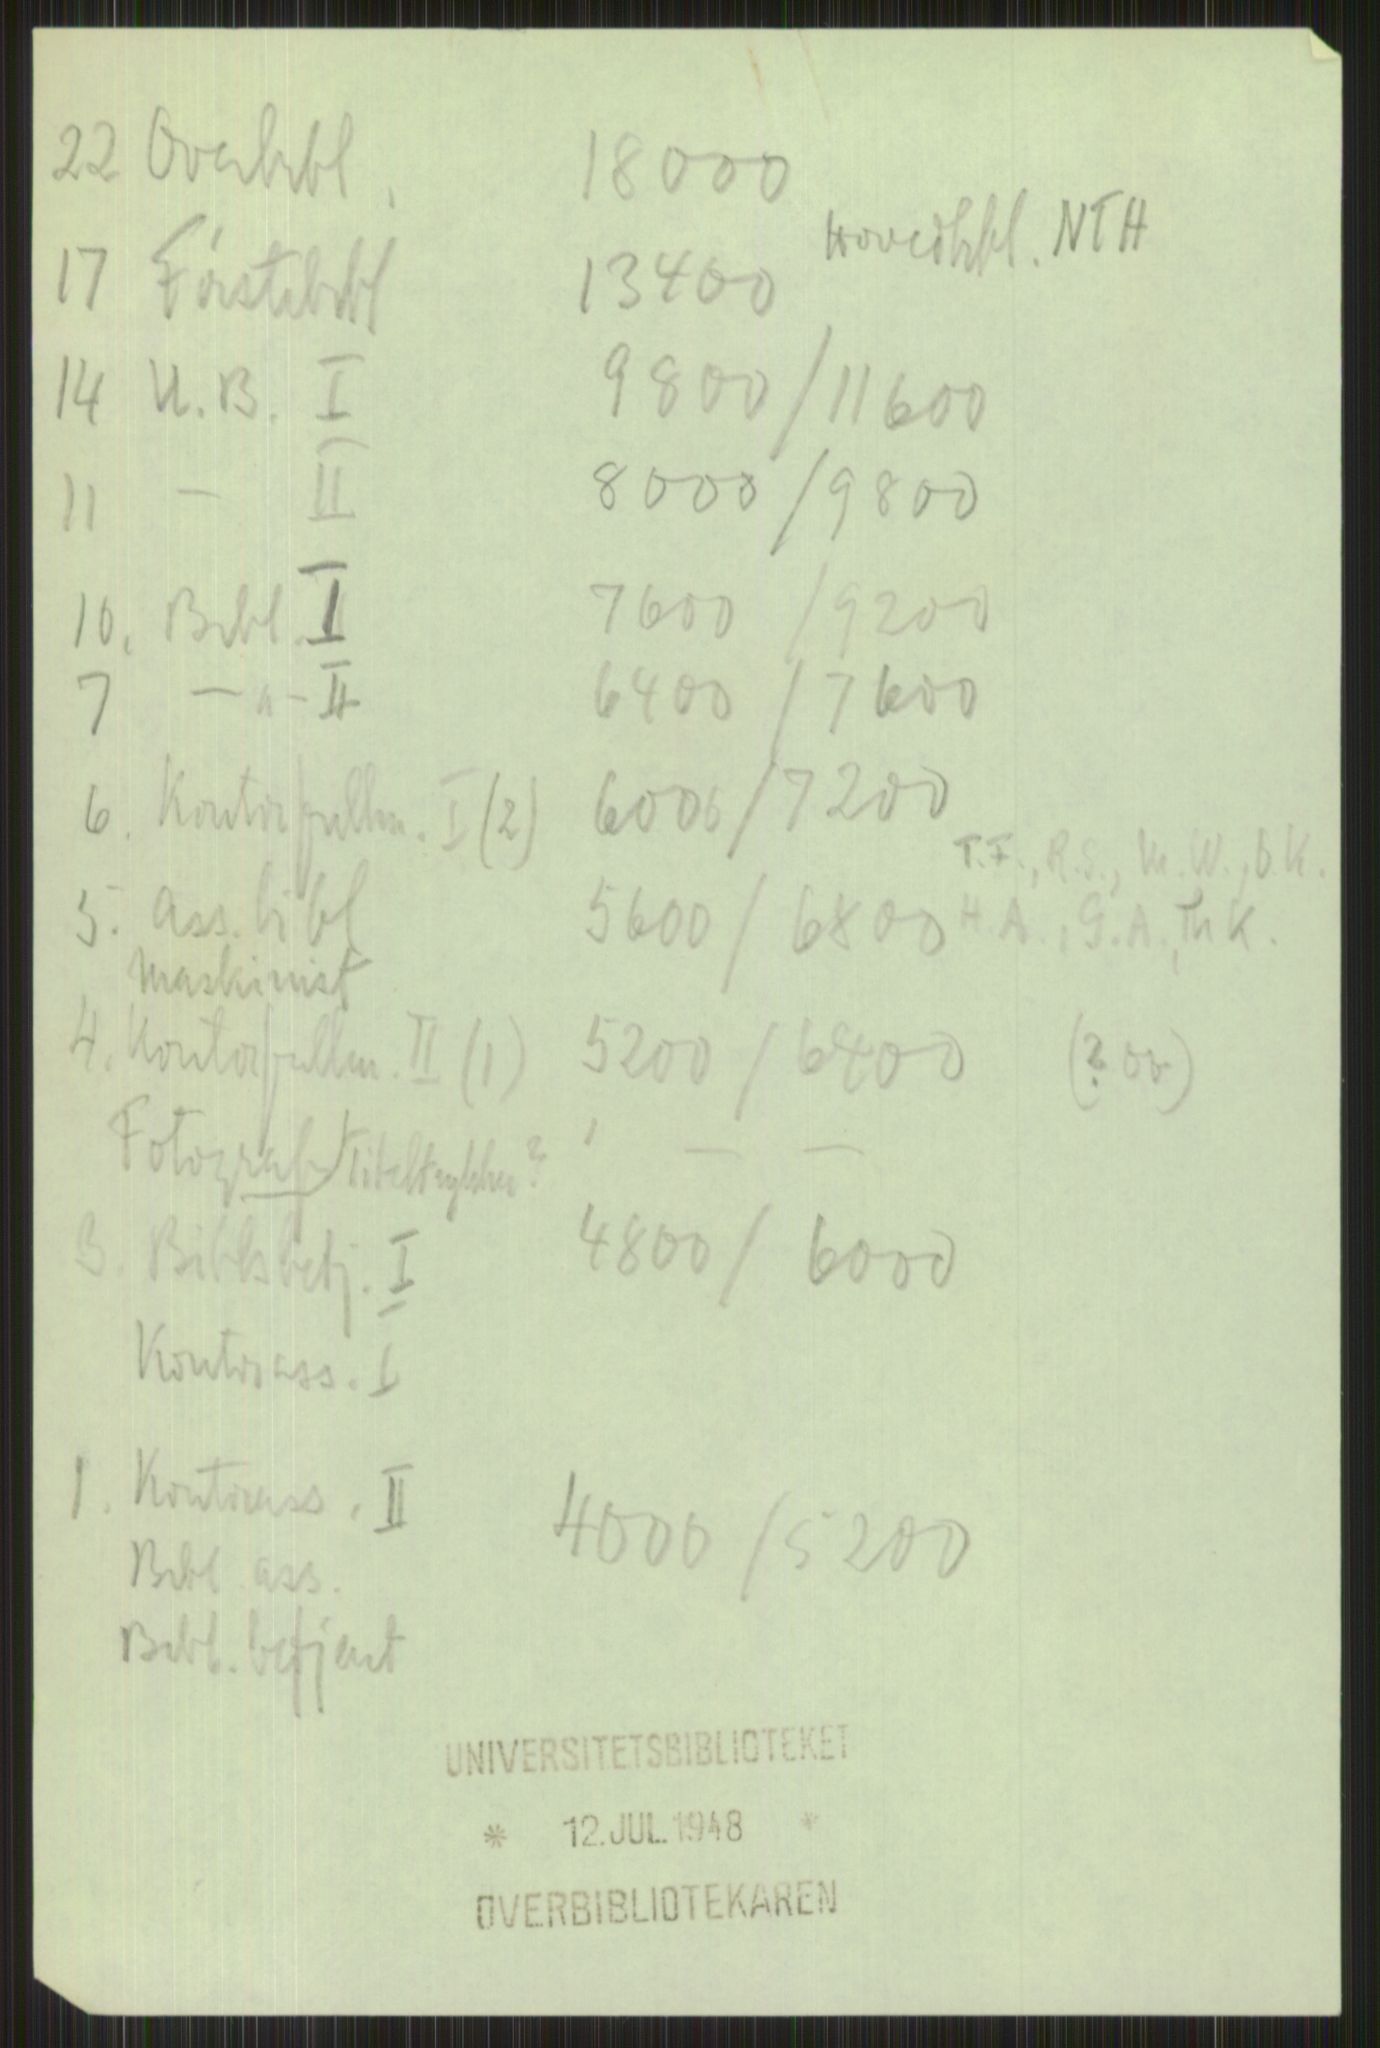 22 Overbibl. 18000
Hovedbibl. NTH
17 Førstebibl 13400
14 U.B. I 9800/11600
11 — II 8000/9800
10. Bibl. I 7600/9200
7 —"— II 6400/7600
6. Kontorfullm. I (2) 6000/7200
T.F., R.S., M.W., O.K.
5. Ass. bibl 5600/6800 H.A., G.A., Th K.
Maskinist
4. Kontorfullm. II (1) 5200/6400 (? oo)
Fotograf — —
3. Biblsbetj. I 4800/6000
Kontorass. I
1. Kontorass. II 4000/5200
Bibl. ass.
Bibl. betjent
UNIVERSITETSBIBLIOTEKET
* 12. JUL. 1948 *
OVERBIBLIOTEKAREN